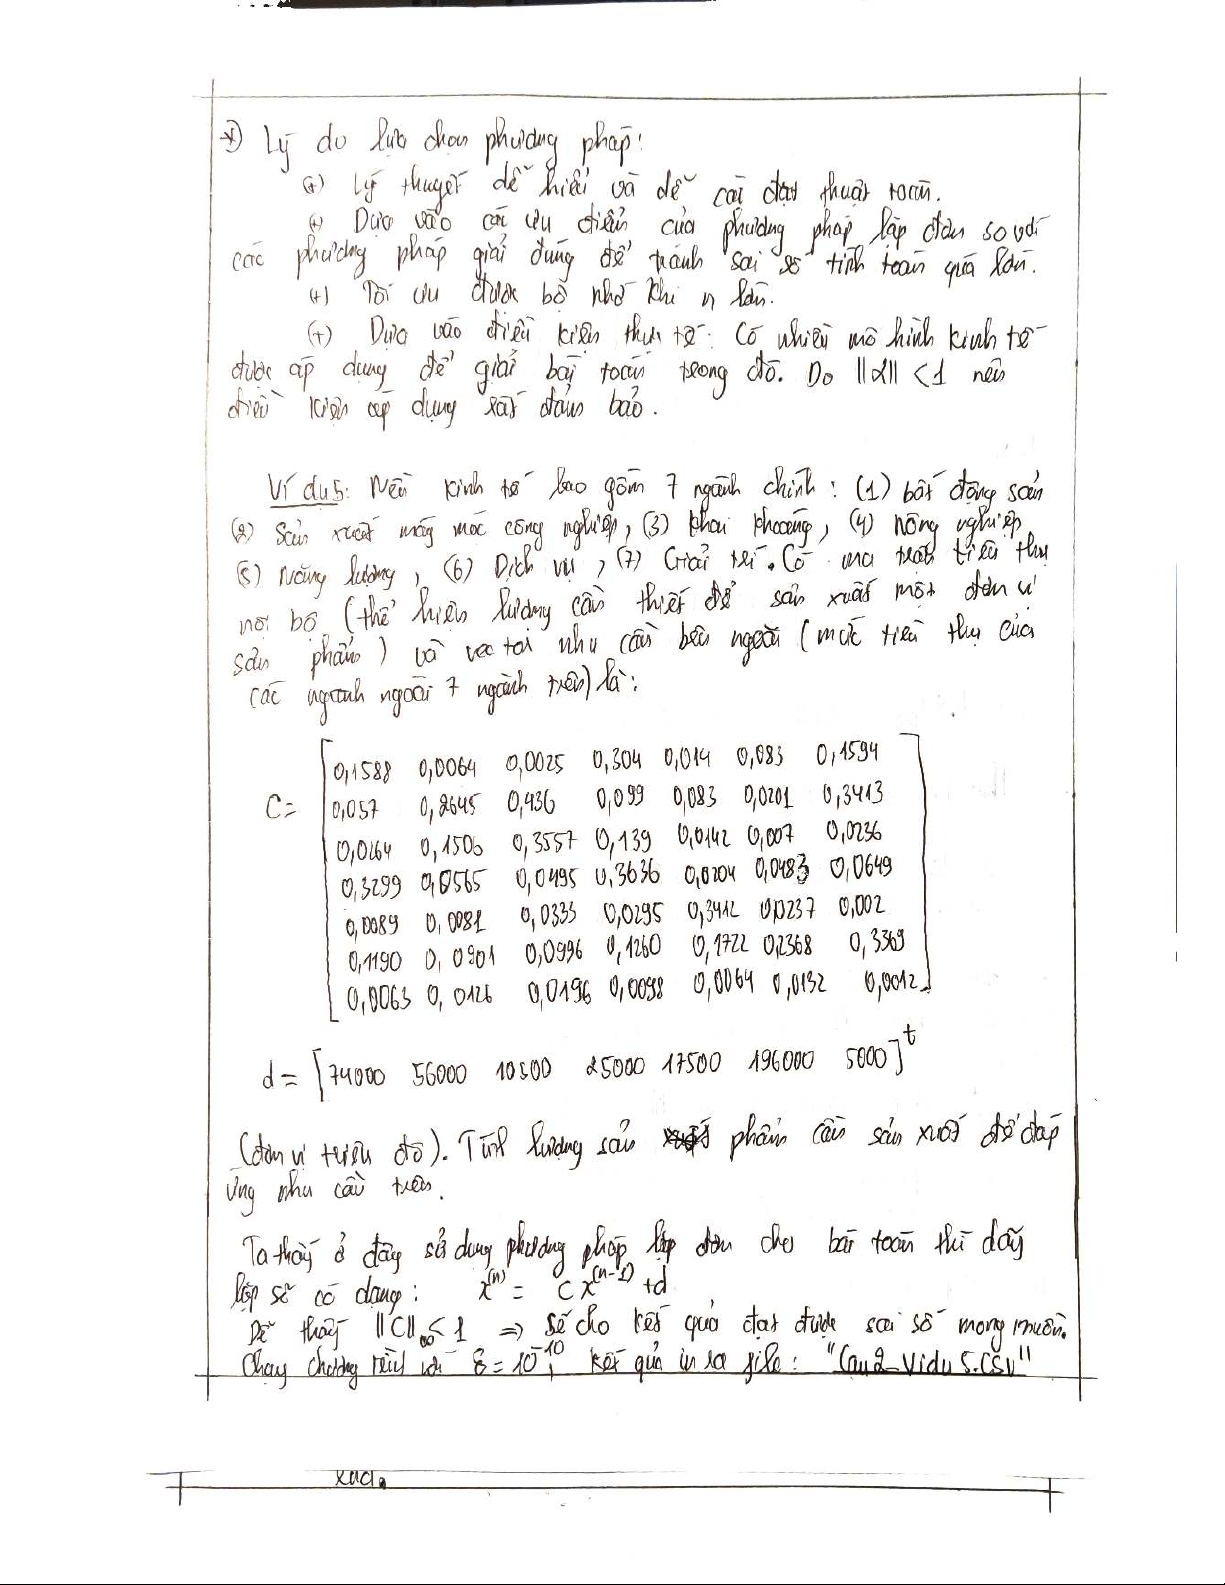 *) Lý do lựa chọn phương pháp:
(+) Lý thuyết dễ hiểu và dễ cài đặt thuật toán.
(+) Dựa vào các ưu điểm của phương pháp lặp đơn so với
các phương pháp giải đúng để tránh sai số tính toán quá lớn.
(+) Tối ưu được bộ nhớ khi n lớn.
(+) Dựa vào điều kiện thực tế: Có nhiều mô hình kinh tế
được áp dụng để giải bài toán trong đó. Do ||α|| < 1 nên
điều kiện áp dụng rất đảm bảo.
Ví dụ 5: Nền kinh tế bao gồm 7 ngành chính: (1) bất động sản
(2) Sản xuất máy móc công nghiệp, (3) khai khoáng, (4) nông nghiệp
(5) Năng lượng, (6) Dịch vụ, (7) Giải trí. Có ma trận tiêu thụ
nội bộ (thể hiện lượng cần thiết để sản xuất một đơn vị
sản phẩm) và vec tơ nhu cầu bên ngoài (mức tiêu thụ của
các ngành ngoài 7 ngành trên) là:
0,1588 0,0064 0,0025 0,304 0,014 0,083 0,1594
C = 0,057 0,2645 0,436 0,099 0,083 0,0201 0,3413
0,0264 0,1506 0,3557 0,139 0,0142 0,007 0,0236
0,3299 0,0565 0,0495 0,3636 0,0204 0,0483 0,0649
0,0089 0,0081 0,0333 0,0295 0,3412 0,0237 0,002
0,1190 0,0901 0,0996 0,1260 0,1722 0,2368 0,3369
0,0063 0,0126 0,0196 0,0098 0,0064 0,0132 0,0012
d = [74000 56000 10500 25000 17500 196000 5000]^t
(đơn vị triệu đô). Tính lượng sản phẩm cần sản xuất để đáp
ứng nhu cầu trên.
Ta thấy ở đây sử dụng phương pháp lặp đơn cho bài toán thì dãy
lặp sẽ có dạng: x^(n) = Cx^(n-1) + d
Dễ thấy ||C||∞ < 1 => sẽ cho kết quả đạt được sai số mong muốn.
Chạy chương trình với ε = 10^-10, kết quả in ra file: "Cau2_Vidu5.CSV"